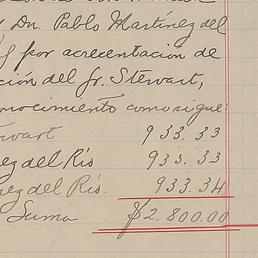 Dn. Pablo Martínez del
por acrecentacion de
ción del Sr. Stewart,
onocimiento como sigue:
tewart 933.33
ez del Rio 933.33
nez del Rio. 933.34
Suma $2.800.00